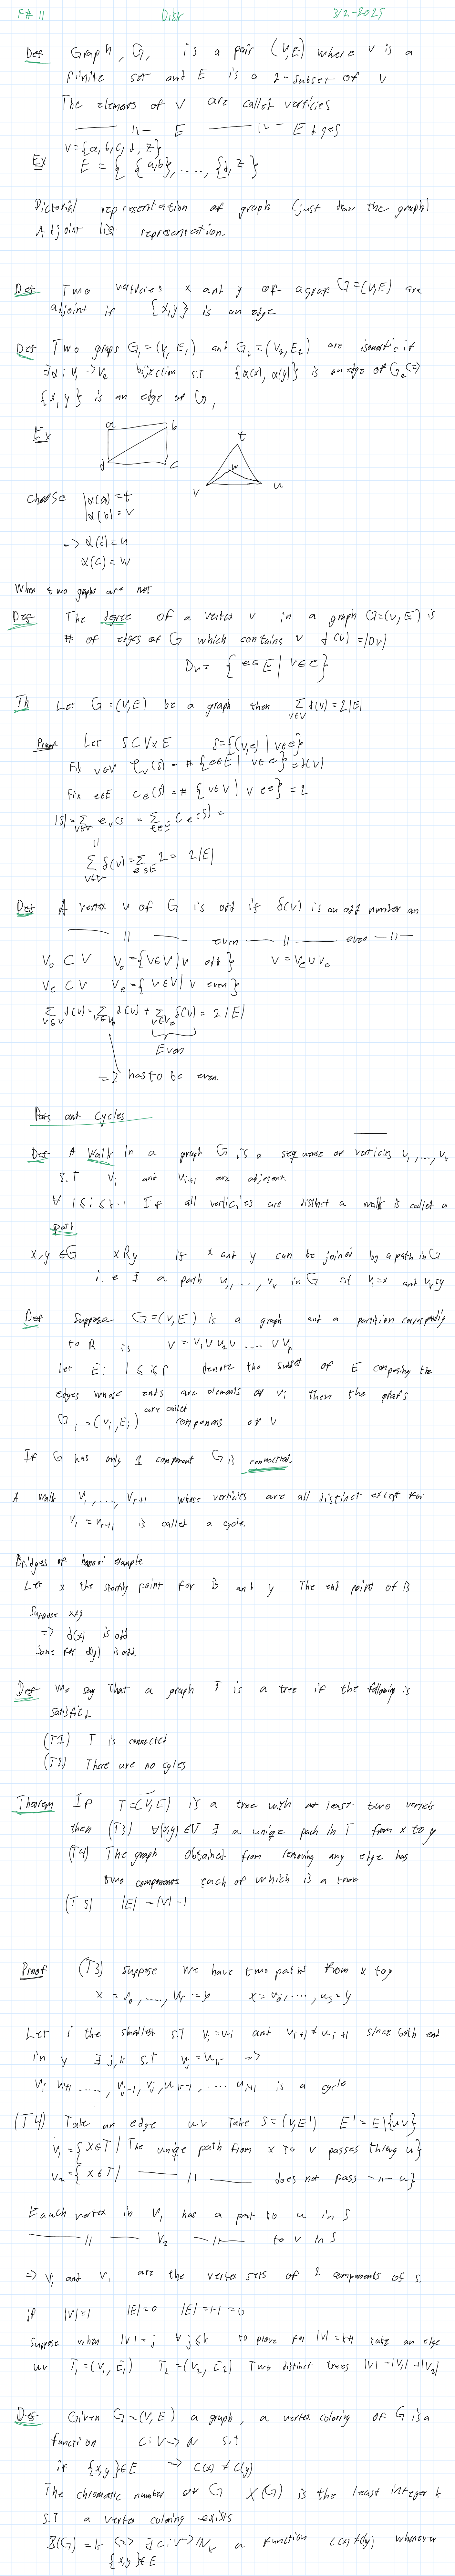 F# 11 Diskr 3/2-2025
Def Graph, G, is a pair (V,E) where V is a
finite set and E is a 2-subset of V
The elements of V are called verticies
—— 11 — E —— 11 — Edges
V = {a,b,c,d,z}
Ex E = { {a,b}, ...., {d,z} }
Pictorial representation of graph (just draw the graph)
Adjoint list representation.
Def Two verticies x and y of a graf G=(V,E) are
adjoint if {x,y} is an edge
Def Two graps G₁=(V₁,E₁) and G₂=(V₂,E₂) are isomorfic if
∃α: V₁→V₂ bijection s.t {α(x), α(y)} is an edge of G₂ <=>
{x,y} is an edge of G₁
Ex a b t
d c v w u
choose α(a)=t
α(b)=v
-> α(d)=u
α(c)=w
When two graphs are not
Def The degree of a vertex v in a graph G=(V,E) is
# of edges of G which contains v δ(v)=|Dv|
Dv = { e∈E | v∈e }
Th Let G=(V,E) be a graph then Σ v∈V δ(v)=2|E|
Proof Let S⊂V×E S={(v,e) | v∈e}
Fix v∈V ℓv(s) = # {e∈E | v∈e} = δ(v)
Fix e∈E Ce(s) = # {v∈V | v∈e} = 2
|S| = Σ v∈V ℓv(s) = Σ e∈E Ce(s) =
11
Σ v∈V δ(v) = Σ e∈E 2 = 2|E|
Def A vertex v of G is odd if δ(v) is an odd number an
—— 11 — even — 11 — even — 11 —
V₀ ⊂ V V₀ = {v∈V | v odd} V = Ve ∪ V₀
Ve ⊂ V Ve = {v∈V | v even}
Σ v∈V δ(v) = Σ v∈V₀ δ(v) + Σ v∈Ve δ(v) = 2|E|
Even
=> has to be even.
Pats and Cycles
Def A Walk in a graph G is a sequense of verticies v₁,...,vk
S.T vi and vi+1 are adjesent.
∀ 1≤i≤k-1 If all verticies are distinct a walk is called a
path
x,y ∈G xRy if x and y can be joined by a path in G
i.e ∃ a path v₁,..., vk in G s.t v₁=x and vk=y
Def Suppose G=(V,E) is a graph and a partition corresponding
to R is V = V₁ ∪ V₂ ∪ .... ∪ Vr
let Ei 1≤i≤r denote the subset of E composing the
edges whose ends are elements of Vi then the grafs
Gi=(Vi,Ei) are called components of V
If G has only 1 component G is connected.
A walk v₁,...., vr+1 whose verticies are all distinct except for
v₁ = vr+1 is called a cycle.
Bridges of example
Let x the starting point for B and y The end point of B
Suppose x≠y
=> δ(x) is odd
same for δ(y) is odd.
Def We say that a graph T is a tree if the following is
satisfied
(T1) T is connected
(T2) There are no cyles
Theorem If T=(V,E) is a tree with at least two verticis
then (T3) ∀(x,y)∈V ∃ a unique path in T from x to y
(T4) The graph obtained from removing any edge has
two components each of which is a tree
(T5) |E| = |V|-1
Proof (T3) suppose we have two paths from x to y
x = v₀,...., vr = y x = u₀,....., us = y
Let i the smallest s.t vi=ui and vi+1 ≠ ui+1 since both end
in y ∃ j,k s.t vj = uk =>
vi vi+1 ....., vj-1, vj, uk-1, .... ui+1 is a cycle
(T4) Take an edge uv Take S=(V,E') E'=E\{uv}
V₁={x∈T | The uniqe path from x to v passes throug u}
V₂={x∈T | —— 11 —— does not pass -11- u}
Eauch vertex in V₁ has a pat to u in S
—— 11 —— V₂ —11— to v in S
=> V₁ and V₁ are the vertex sets of 2 components of S.
if |V|=1 |E|=0 |E|=1-1=0
Suppose when |V|=j ∀j≤k to prove for |V|=k+1 take an edge
uv T₁=(V₁,E₁) T₂=(V₂,E₂) Two distinct trees |V|=|V₁|+|V₂|
Def Given G=(V,E) a graph, a vertex coloring of G is a
function C: V→N s.t
if {x,y}∈E => C(x) ≠ C(y)
The chromatic number of G χ(G) is the least integer k
S.T a vertex coloring exists
χ(G)=k <=> ∃ c: V→Nk a function C(x)≠C(y) whenever
{x,y}∈E